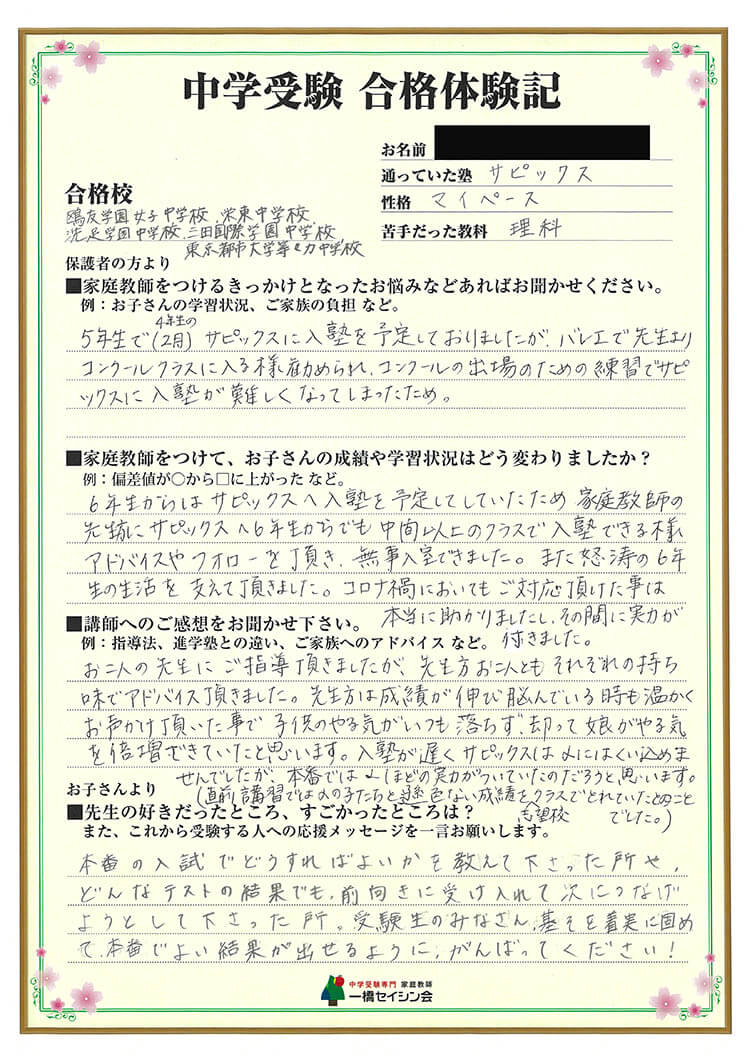 中学受験 合格体験記
お名前
通っていた塾 サピックス
性格 マイペース
苦手だった教科 理科
合格校
鷗友学園女子中学校、栄東中学校、
洗足学園中学校、三田国際学園中学校、
東京都市大学等々力中学校
保護者の方より
■家庭教師をつけるきっかけとなったお悩みなどあればお聞かせください。
例：お子さんの学習状況、ご家族の負担 など。
5年生で(4年生の2月) サピックスに入塾を予定しておりましたが、バレエで先生より
コンクールクラスに入る様勧められ、コンクールの出場のための練習でサピ
ックスに入塾が難しくなってしまったため。
■家庭教師をつけて、お子さんの成績や学習状況はどう変わりましたか？
例：偏差値が○から□に上がった など。
6年生からはサピックスへ入塾を予定してしていたため 家庭教師の
先生にサピックスへ6年生からでも中間以上のクラスで入塾できる様
アドバイスやフォローを頂き、無事入室できました。また怒涛の6年
生の生活を支えて頂きました。コロナ禍においてもご対応頂けた事は
本当に助かりましたし、その間に実力が
付きました。
■講師へのご感想をお聞かせ下さい。
例：指導法、進学塾との違い、ご家族へのアドバイス など。
お二人の先生にご指導頂きましたが、先生方お二人ともそれぞれの持ち
味でアドバイス頂きました。先生方は成績が伸び脳んでいる時も温かく
お声かけ頂いた事で子供のやる気がいつも落ちず、却って娘がやる気
を倍増できていたと思います。入塾が遅くサピックスはαにはくい込めま
せんでしたが、本番ではαほどの実力がついていたのだろうと思います。
(直前講習ではαの子たちと遜色ない成績を志望校クラスでとれていたとのこと
でした。)
お子さんより
■先生の好きだったところ、すごかったところは？
また、これから受験する人への応援メッセージを一言お願いします。
本番の入試でどうすればよいかを教えて下さった所や、
どんなテストの結果でも、前向きに受け入れて次につなげ
ようとして下さった所。受験生のみなさん、基そを着実に固め
て、本番でよい結果が出せるように、がんばってください！
中学受験専門 家庭教師
一橋セイシン会